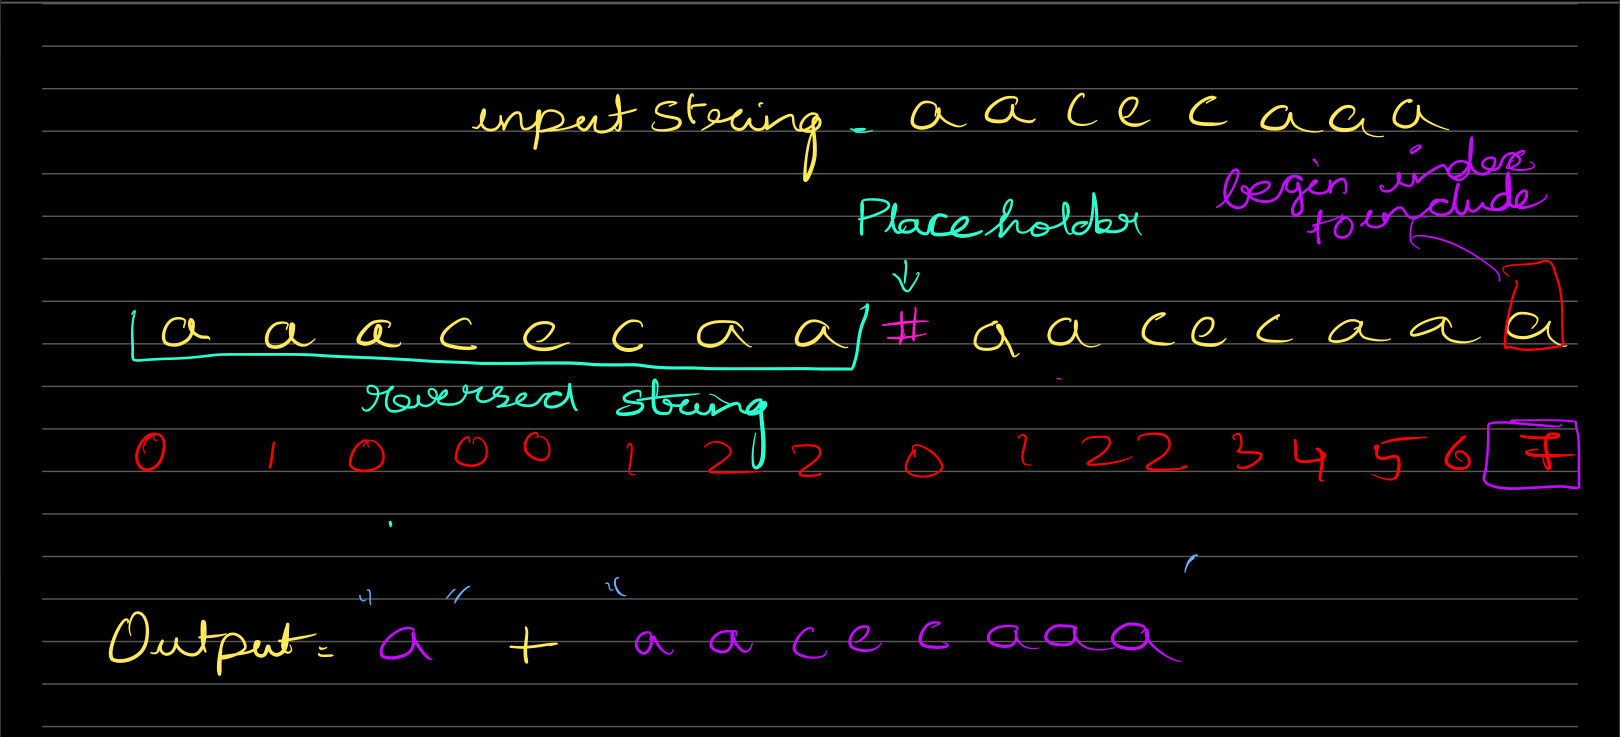 input string = a a c e c a a a
begin index
to include
Placeholder
a a a c e c a a # a a c e c a a a
reversed string
0 1 0 0 0 1 2 2 0 1 2 2 3 4 5 6 7
Output = "a" + "a a c e c a a a